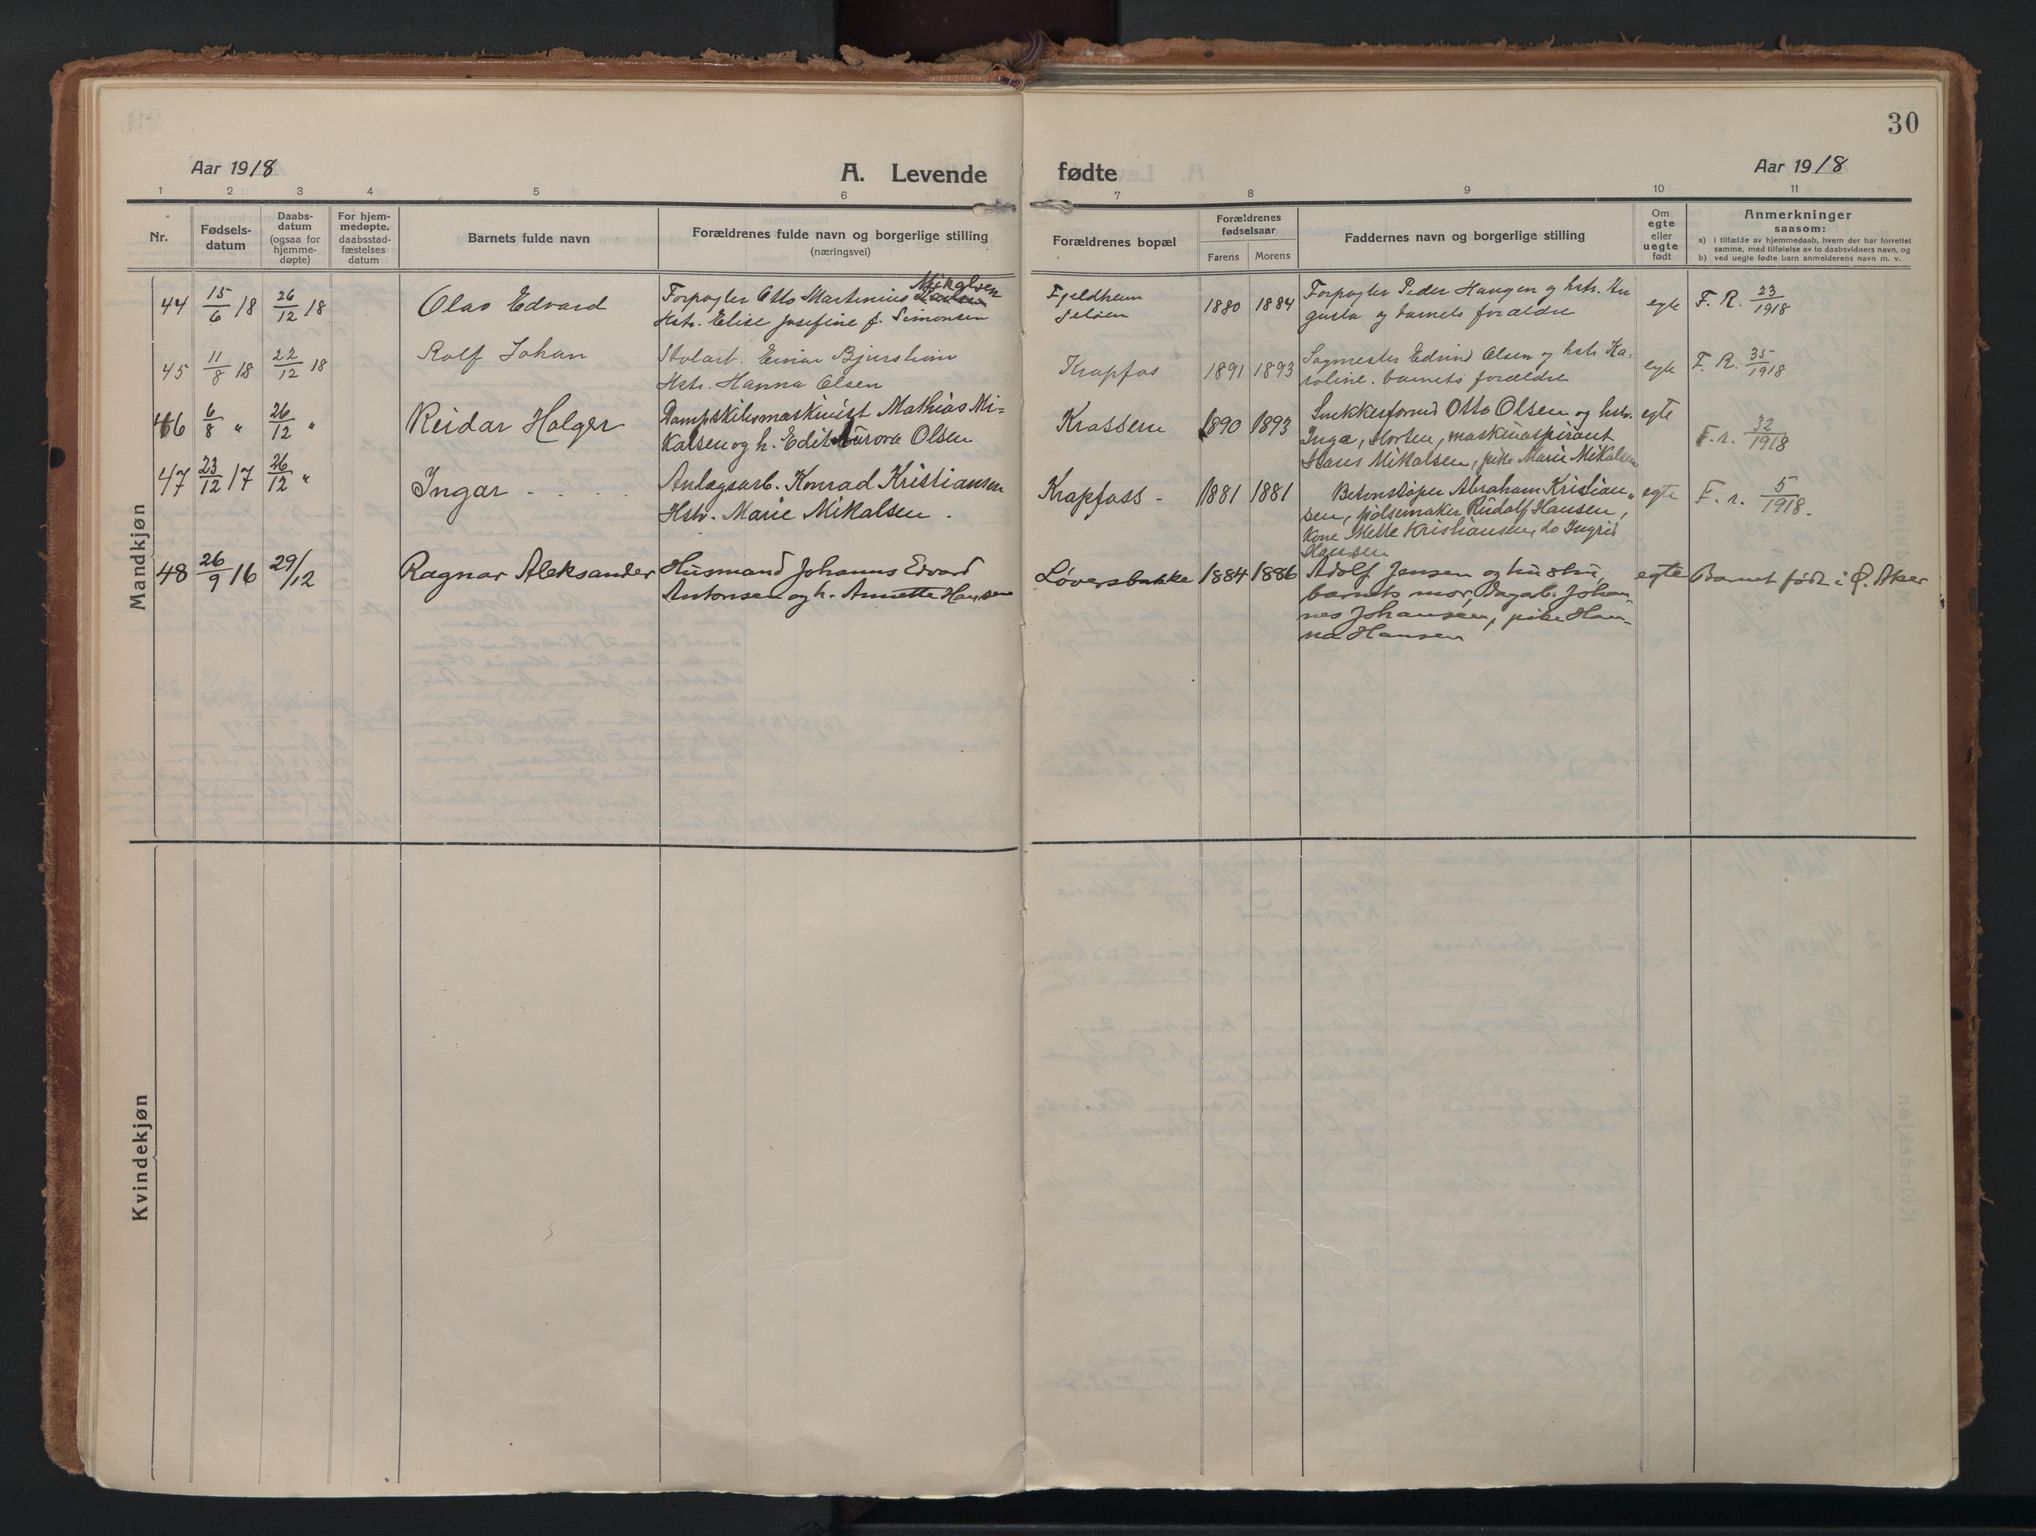 30
Aar 1918
A. Levende
fødte
Aar 1918
1 2 3 4 5 6 7 8 9 10 11
Nr.
Fødsels-
datum
Daabs-
datum
(ogsaa for
hjemme-
døpte)
For hjem-
medøpte,
daabsstad-
fæstelses
datum
Barnets fulde navn
Forældrenes fulde navn og borgerlige stilling
(næringsvei)
Forældrenes bopæl
Forældrenes
fødselsaar
Farens Morens
Faddernes navn og borgerlige stilling
Om
egte
eller
uegte
født
Anmerkninger
saasom:
a) I tilfælde av hjemmedaab, hvem der har forrettet
samme, med tilføielse av to daabsvidners navn, og
b) ved uegte fødte barn anmelderens navn m. v.
Mandkjøn
44 15/6 18 26/12 18 Olav Edvard
Mikalsen
Forpagter Otto Martinius
Hstr. Elise Josefine f. Simonsen
Fjeldheim
1880 1884
Forpagter Peder Haugen og hstr. Au
gusta og barnets forældre
egte F. R. 23/1918
45 11/8 18 22/12 18 Rolf Johan
Einar
Hstr. Hanna Olsen
Krapfos 1891 1893
Sagmester Edvind Olsen og hstr. Ka-
roline. barnets forældre
egte F. R. 35/1918
46 6/8 " 26/12 " Reidar Holger
Dampskibsmaskinist Mathias Mi-
kalsen og h. Edit Aurora Olsen
Krossern 1890 1893
Snekkerformd Otto Olsen og hstr.
Inga, Morten, maskinaspirant
Hans Mikalsen, pike Marie Mikalsen
egte F. r. 32/1918
47 23/12 17 26/12 " Ingar - . . .
Anlægsarb. Konrad Kristiansen
Hstr. Marie Mikalsen.
Krapfoss - 1881 1881
Betonstøper Abraham Kristian-
sen, pølsemaker Rudolf Hansen,
Kone Mette Kristiansen, do Ingrid
Hansen
egte F. r. 5/1918.
48 26/9 16 29/12 Ragnar Aleksander
Husmand Johannes Edvard
Antonsen og h. Annette Hansen
Løversbakke 1884 1886
Adolf Jensen og hustru,
barnets mor, Dagarb. Johan-
nes Johansen, pike Han-
na Hansen
egte Barnet født i Ø. Aker
Kvindekjøn